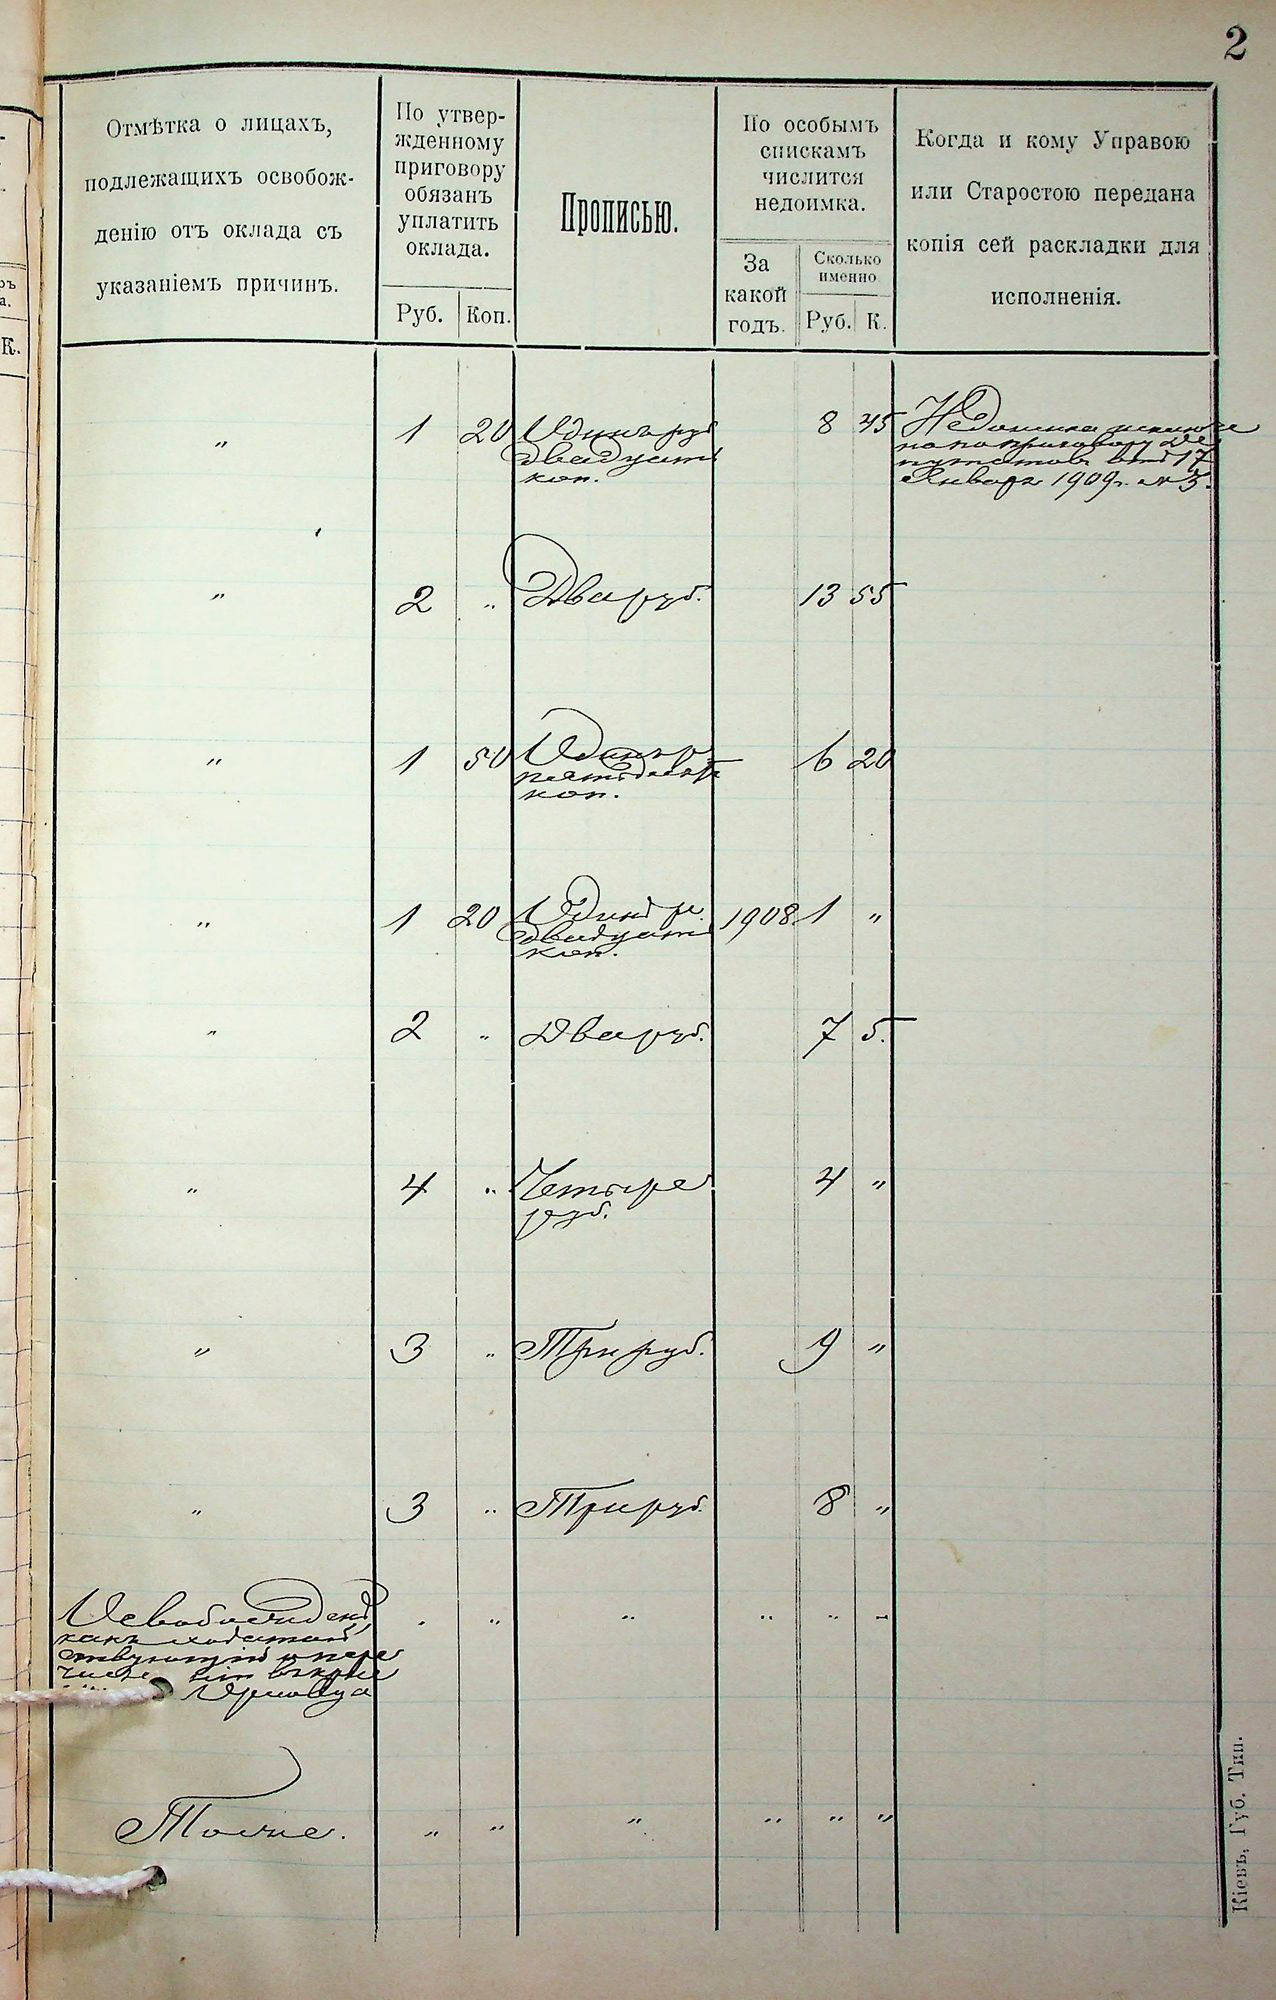 2
Отмѣтка о лицахъ,
подлежащихъ освобож-
денію отъ оклада съ
указаніемъ причинъ.
По утвер-
жденному
приговору
обязанъ
уплатить
оклада.
Руб. Коп.
Прописью.
По особымъ
спискамъ
числится
недоимка.
За
какой
годъ.
Сколько
именно
Руб. К.
Когда и кому Управою
или Старостою передана
копія сей раскладки для
исполненія.
ръ
а.
К.
" 1 20 Одинъ руб 8 45 Недоимка
двадцать
коп.
по приговору де
путатовъ отъ 17
Января 1909 г. № 3.
" 2 " Два руб. 13 55
" 1 50 Одинъ р. 6 20
пятьдесят
коп.
" 1 20 Одинъ р. 1908 1 "
двадцать
коп.
" 2 " Два руб. 7 5.
" 4 " Четыре 4 "
руб.
" 3 " Три руб. 9 "
" 3 " Три руб. 8 "
Освобожденъ " " " " " "
какъ
Тоже. " " " " " "
Кіевъ, Губ. Тип.